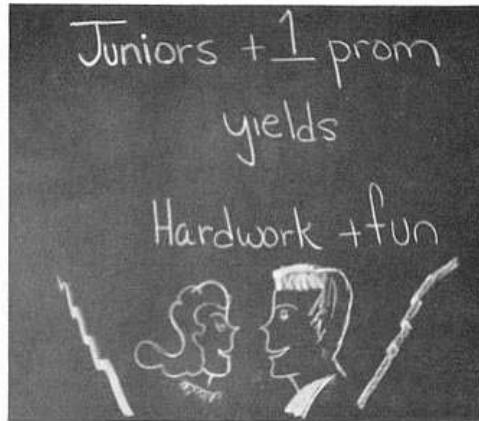 Juniors + 1 prom
yields
Hardwork + fun